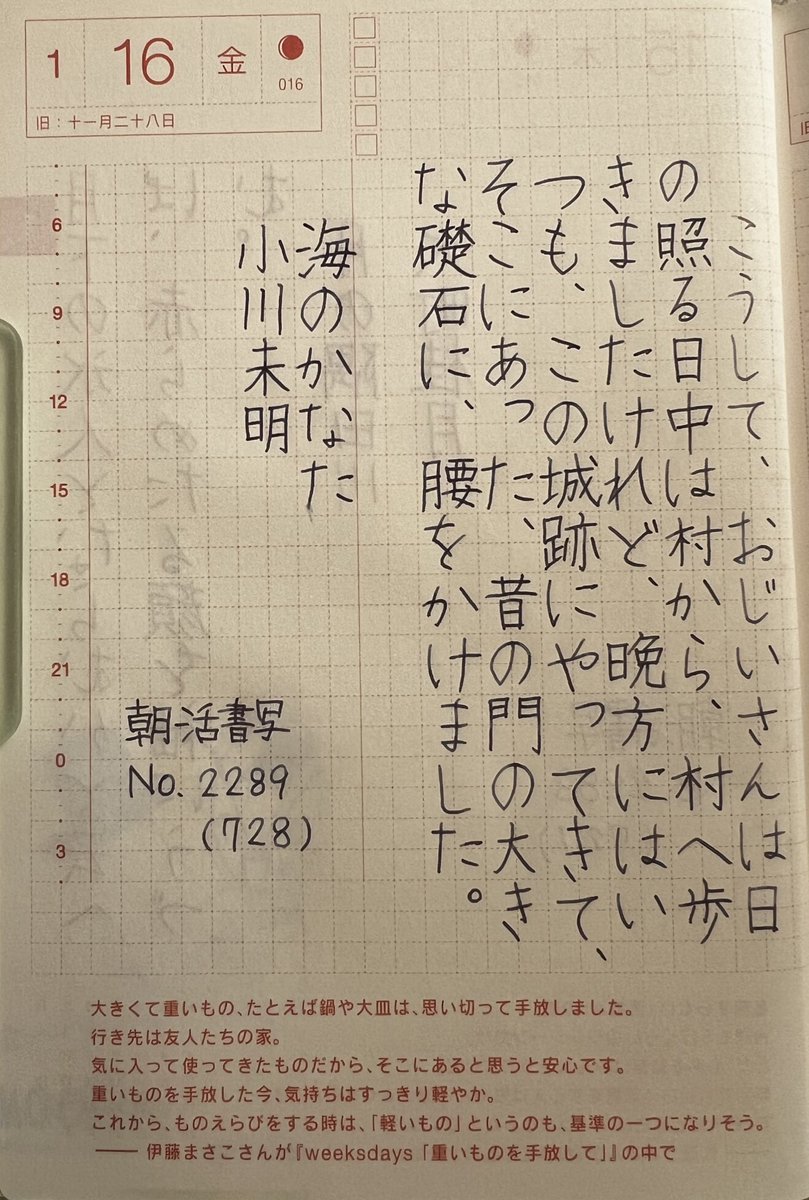 1 16 金
016
旧：十一月二十八日
こうして、おじいさんは日
の照る日中は村から、村へ歩
きましたけれど、晩方にはい
つも、この城跡にやってきて、
そこにあった、昔の門の大き
な礎石に、腰をかけました。
海のかなた
小川未明
朝活書写
No. 2289
(728)
6
9
12
15
18
21
0
3
大きくて重いもの、たとえば鍋や大皿は、思い切って手放しました。
行き先は友人たちの家。
気に入って使ってきたものだから、そこにあると思うと安心です。
重いものを手放した今、気持ちはすっきり軽やか。
これから、ものえらびをする時は、「軽いもの」というのも、基準の一つになりそう。
—— 伊藤まさこさんが『weeksdays「重いものを手放して」』の中で